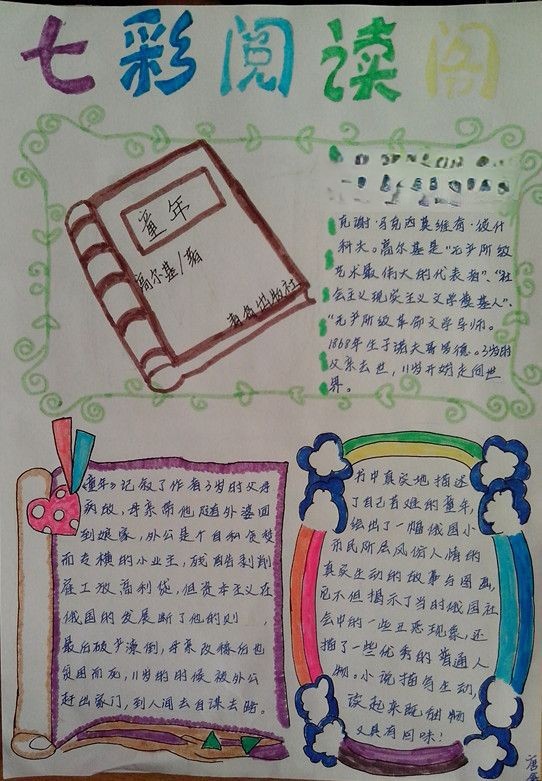 七彩阅读阁
童年
高尔基/著
青春出版社
克谢·马克西莫维奇·彼什
科夫。高尔基是"无产阶级
艺术最伟大的代表者"、"社
会主义现实主义文学奠基人"、
"无产阶级革命文学导师。
1868年生于诺夫哥罗德。3岁时
父亲去世，11岁开始走向世
界。
《童年》记叙了作者3岁时父母
病故，母亲带他随着外婆回
到娘家，外公是个自私贪婪
而专横的小业主，残酷剥削
雇工放高利贷，但资本主义在
俄国的发展断了他的财
最后破产潦倒，母亲改嫁后也
贫困而死，11岁的时候被外公
赶出家门，到人间去自谋生路。
书中真实地描述
了自己苦难的童年，
绘出了一幅俄国小
市民阶层风俗人情的
真实生动的故事与图画，
它不但揭示了当时俄国社
会中的一些丑恶现象，还
描了一些优秀的普通人
物。小说描写生动，
读起来既细腻
又具有回味！